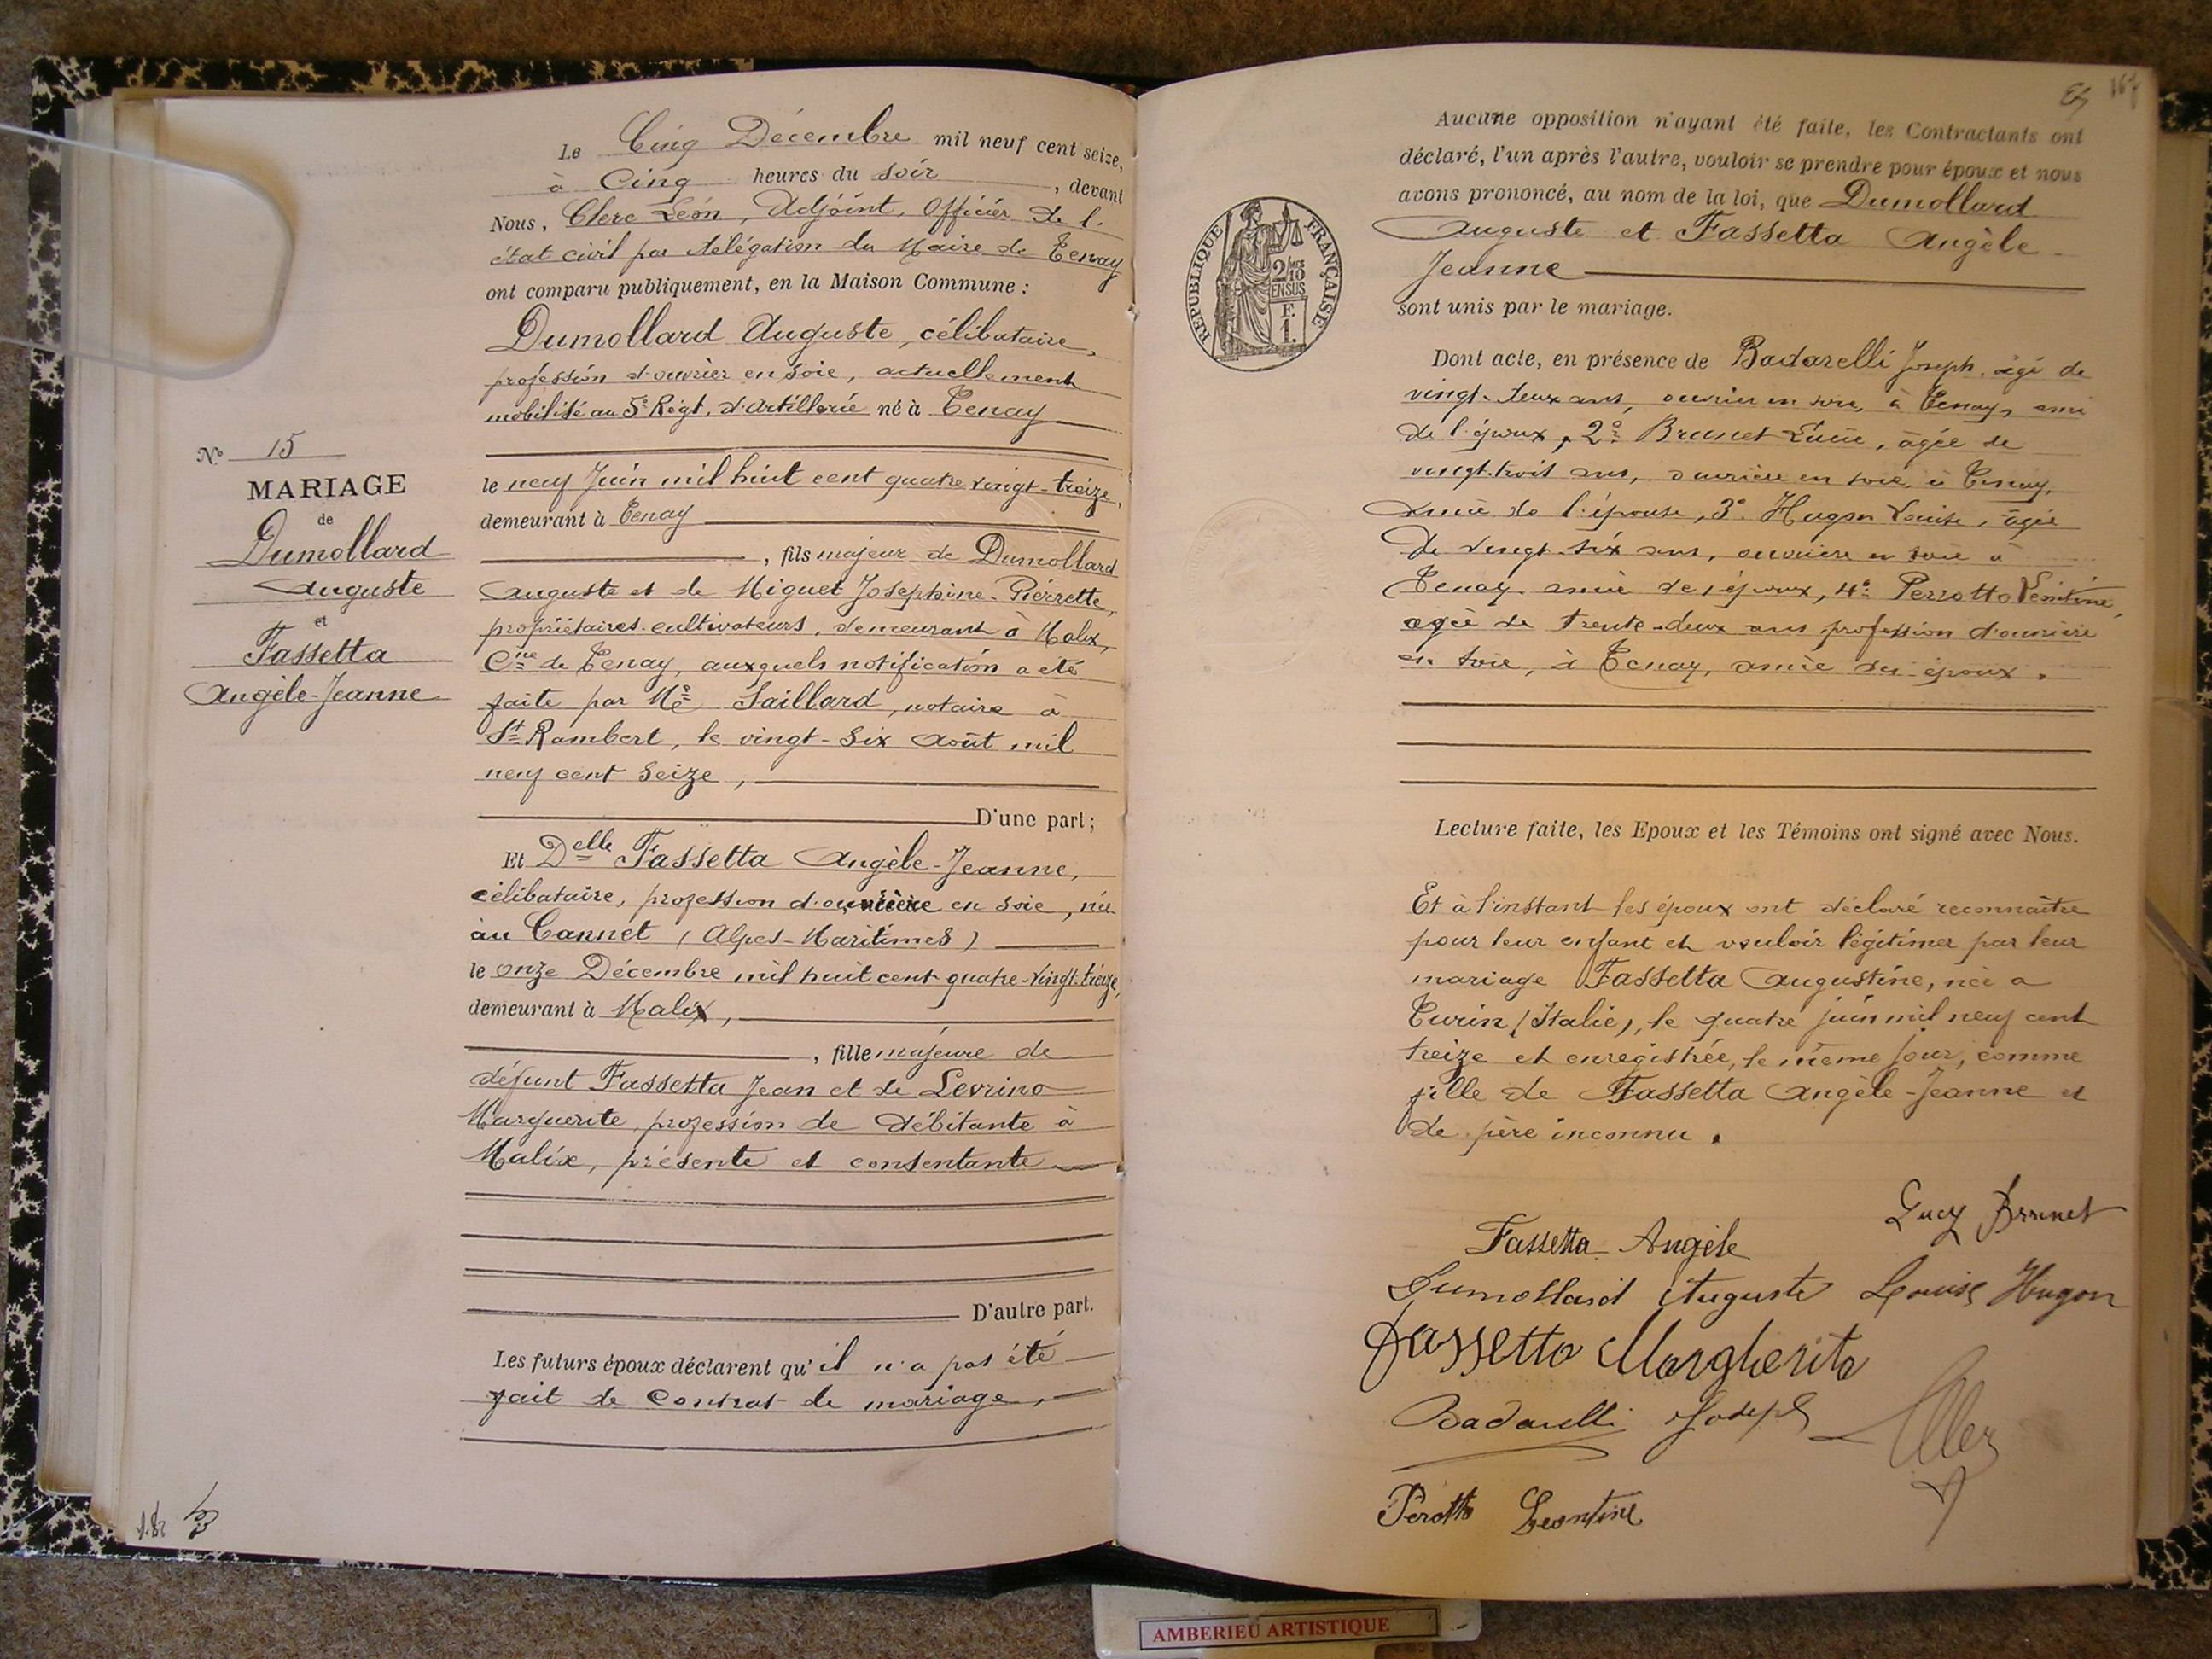 N° 15
MARIAGE
de
Dumollard
Auguste
et
Fassetta
Angèle-Jeanne
Le Cinq Décembre mil neuf cent seize,
à Cinq heures du soir, devant
Nous, Clerc Léon, Adjoint, Officier de l'
état civil par délégation du Maire de Tenay
ont comparu publiquement, en la Maison Commune :
Dumollard Auguste, célibataire,
profession d'ouvrier en soie, actuellement
mobilisé au 5e Régt. d'Artillerie né à Tenay
le neuf Juin mil huit cent quatre vingt-treize,
demeurant à Tenay
, fils majeur de Dumollard
Auguste et de Miguet Josephine-Pierrette,
propriétaires-cultivateurs, demeurant à Malix,
Cne de Tenay, auxquels notification a été
faite par Me Saillard, notaire à
St Rambert, le vingt-six août mil
neuf cent seize,
D'une part ;
Et Delle Fassetta Angèle-Jeanne,
célibataire, profession d'ouvrière en soie, née
au Cannet (Alpes-Maritimes)
le onze Décembre mil huit cent quatre-vingt-treize,
demeurant à Malix,
, fille majeure de
défunt Fassetta Jean et de Levrino
Marguerite, profession de débitante à
Malix, présente et consentante
D'autre part.
Les futurs époux déclarent qu'il n'a pas été
fait de contrat de mariage,
Aucune opposition n'ayant été faite, les Contractants ont
déclaré, l'un après l'autre, vouloir se prendre pour époux et nous
avons prononcé, au nom de la loi, que Dumollard
Auguste et Fassetta Angèle-
Jeanne
sont unis par le mariage.
REPUBLIQUE FRANÇAISE
2/10
EN SUS
F.
1.
Dont acte, en présence de Badarelli Joseph, âgé de
vingt-deux ans, ouvrier en soie, à Tenay, ami
de l'époux, 2° Brunet Lucie, âgée de
vingt-trois ans, ouvrière en soie à Tenay,
amie de l'épouse, 3° Hugon Louise, âgée
de vingt-six ans, ouvrière en soie à
Tenay amie de l'époux, 4° Perrotto Léontine,
agée de trente-deux ans profession d'ouvrière
en soie, à Tenay, amie des époux.
Lecture faite, les Epoux et les Témoins ont signé avec Nous.
Et à l'instant les époux ont déclaré reconnaître
pour leur enfant et vouloir légitimer par leur
mariage Fassetta Augustine, née a
Turin (Italie), le quatre juin mil neuf cent
treize et enregistrée, le même jour, comme
fille de Fassetta Angèle-Jeanne et
de père inconnu.
Lucy Brunet
Fassetta Angèle
Dumollard Auguste Louise Hugon
Fassetto Margherita
Badarelli Joseph
Perotto Leontine
AMBERIEU ARTISTIQUE